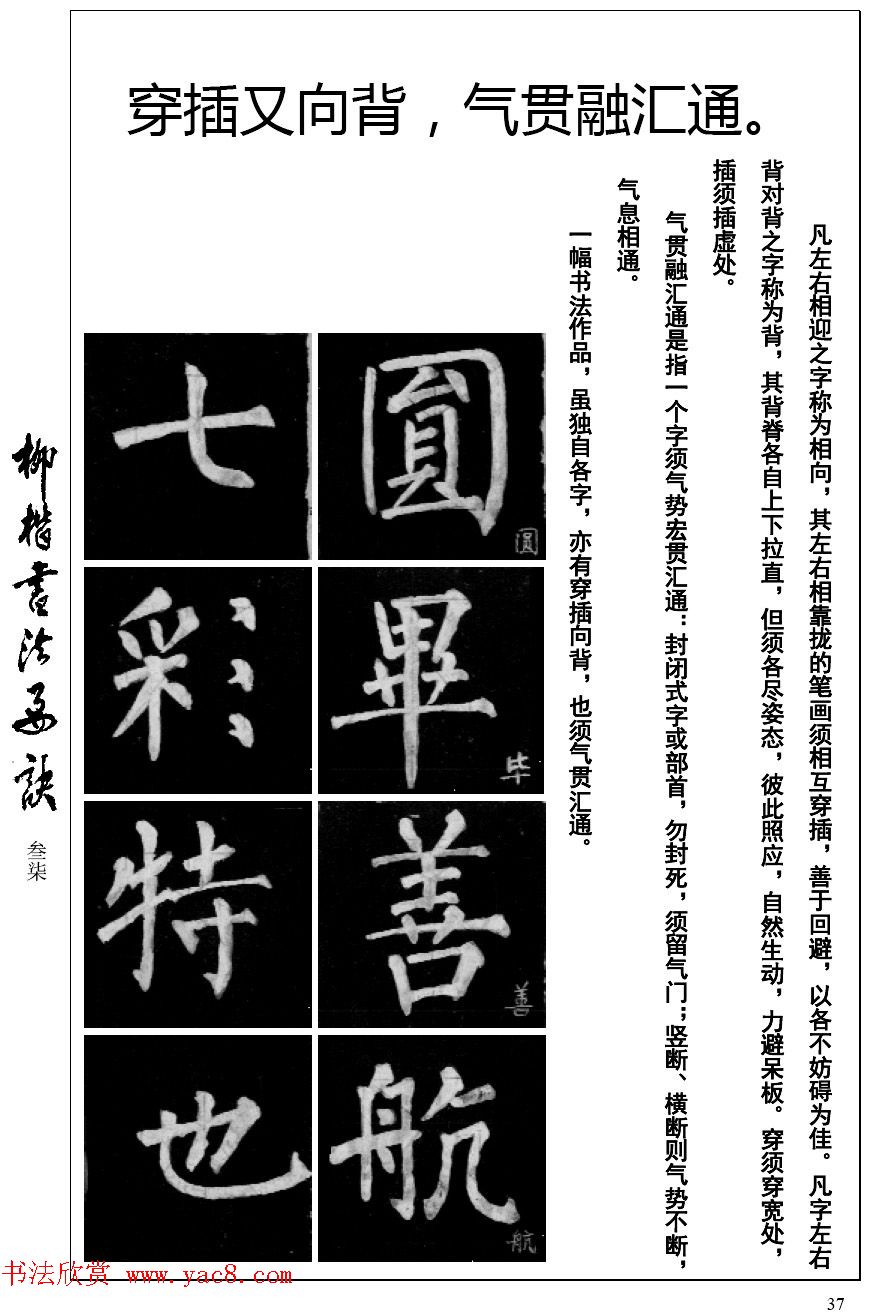 穿插又向背，气贯融汇通。
凡左右相迎之字称为相向，其左右相靠拢的笔画须相互穿插，善于回避，以各不妨碍为佳。凡字左右
背对背之字称为背，其背脊各自上下拉直，但须各尽姿态，彼此照应，自然生动，力避呆板。穿须穿宽处，
插须插虚处。
气贯融汇通是指一个字须气势宏贯汇通：封闭式字或部首，勿封死，须留气门；竖断、横断则气势不断，
气息相通。
一幅书法作品，虽独自各字，亦有穿插向背，也须气贯汇通。
圓
圆
畢
毕
善
善
航
航
七
彩
特
也
柳楷書法要訣
叁柒
书法欣赏 www.yac8.com
37